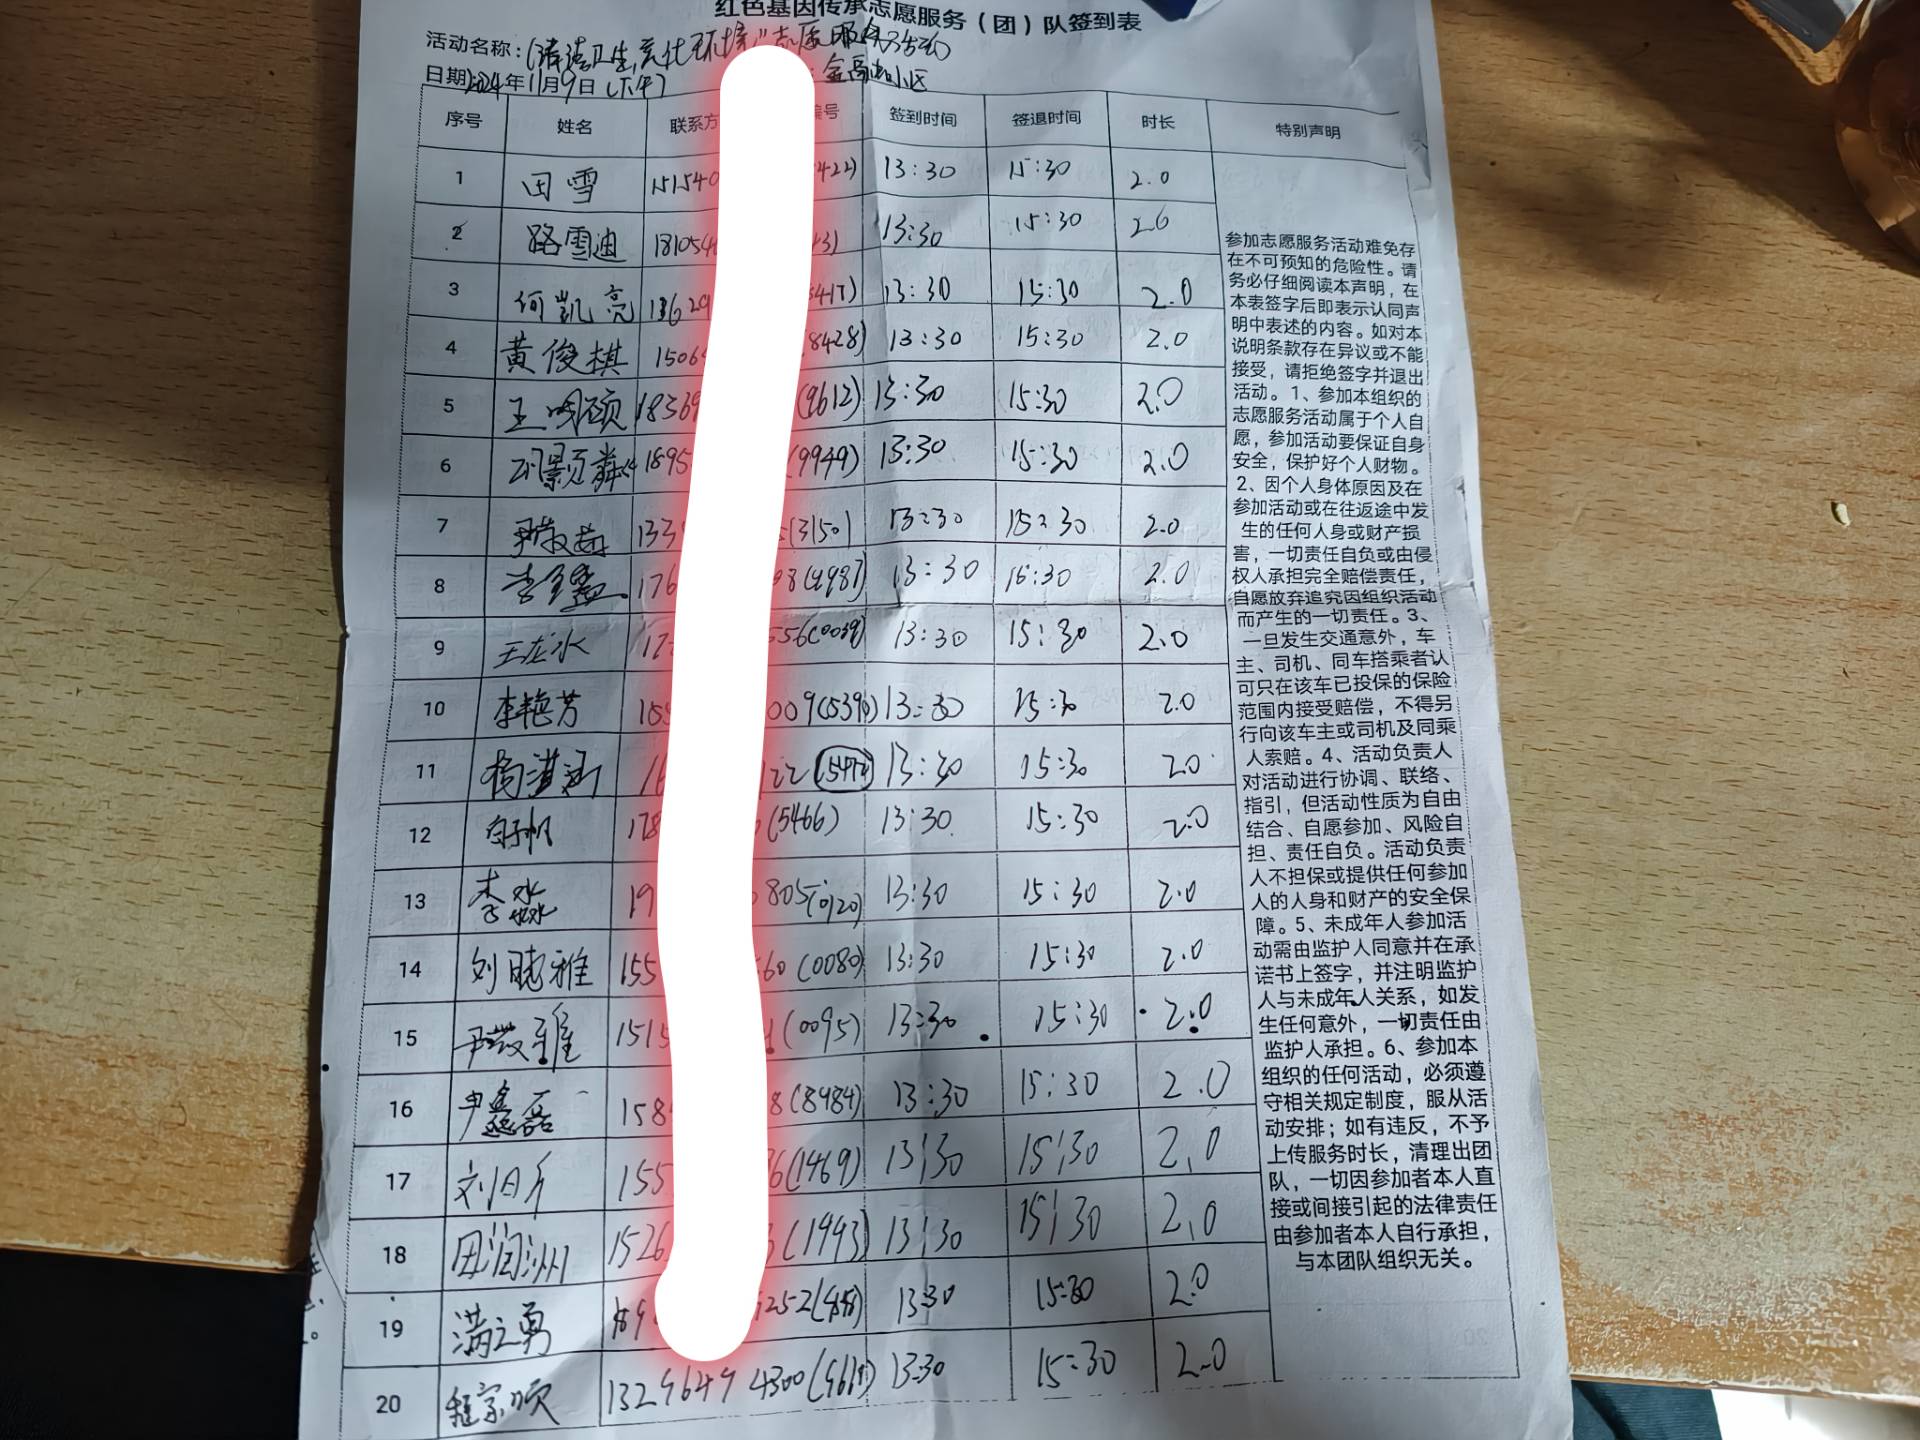 红色基因传承志愿服务（团）队签到表
活动名称：清洁卫生,亮化环境"志愿服务活动
日期2024年11月9日(下午) 金
序号 姓名 联系方 编号 签到时间 签退时间 时长 特别声明
1 田雪 151540 422) 13:30 15:30 2.0
2 路雪迪 181054 43) 13:30 15:30 2.0
3 何凯亮 13:30 15:30 2.0
4 黄俊棋 1506 8428) 13:30 15:30 2.0
5 王鸣硕 18369 (9612) 13:30 15:30 2.0
6 1895 (9949) 13:30 15:30 2.0
7 133 (3150) 13:30 15:30 2.0
8 176 13:30 15:30 2.0
9 王龙水 17 556(0039) 13:30 15:30 2.0
10 李艳芳 155 009(5390) 13:30 15:30 2.0
11 杨淇涵 1 22 13:30 15:30 2.0
12 178 (5466) 13:30 15:30 2.0
13 李淼 19 805(0120) 13:30 15:30 2.0
14 刘晓雅 155 60(0080) 13:30 15:30 2.0
15 1515 (0095) 13:30 15:30 2.0
16 尹鑫磊 158 8(8484) 13:30 15:30 2.0
17 155 6(1469) 13:30 15:30 2.0
18 田润洲 1526 (1943) 13:30 15:30 2.0
19 满之勇 252 13:30 15:30 2.0
20 程家顺 4300 13:30 15:30 2.0
参加志愿服务活动难免存
在不可预知的危险性。请
务必仔细阅读本声明，在
本表签字后即表示认同声
明中表述的内容。如对本
说明条款存在异议或不能
接受，请拒绝签字并退出
活动。1、参加本组织的
志愿服务活动属于个人自
愿，参加活动要保证自身
安全，保护好个人财物。
2、因个人身体原因及在
参加活动或在往返途中发
生的任何人身或财产损
害，一切责任自负或由侵
权人承担完全赔偿责任，
自愿放弃追究因组织活动
而产生的一切责任。3、
一旦发生交通意外，车
主、司机、同车搭乘者认
可只在该车已投保的保险
范围内接受赔偿，不得另
行向该车主或司机及同乘
人索赔。4、活动负责人
对活动进行协调、联络、
指引，但活动性质为自由
结合、自愿参加、风险自
担、责任自负。活动负责
人不担保或提供任何参加
人的人身和财产的安全保
障。5、未成年人参加活
动需由监护人同意并在承
诺书上签字，并注明监护
人与未成年人关系，如发
生任何意外，一切责任由
监护人承担。6、参加本
组织的任何活动，必须遵
守相关规定制度，服从活
动安排；如有违反，不予
上传服务时长，清理出团
队，一切因参加者本人直
接或间接引起的法律责任
由参加者本人自行承担，
与本团队组织无关。